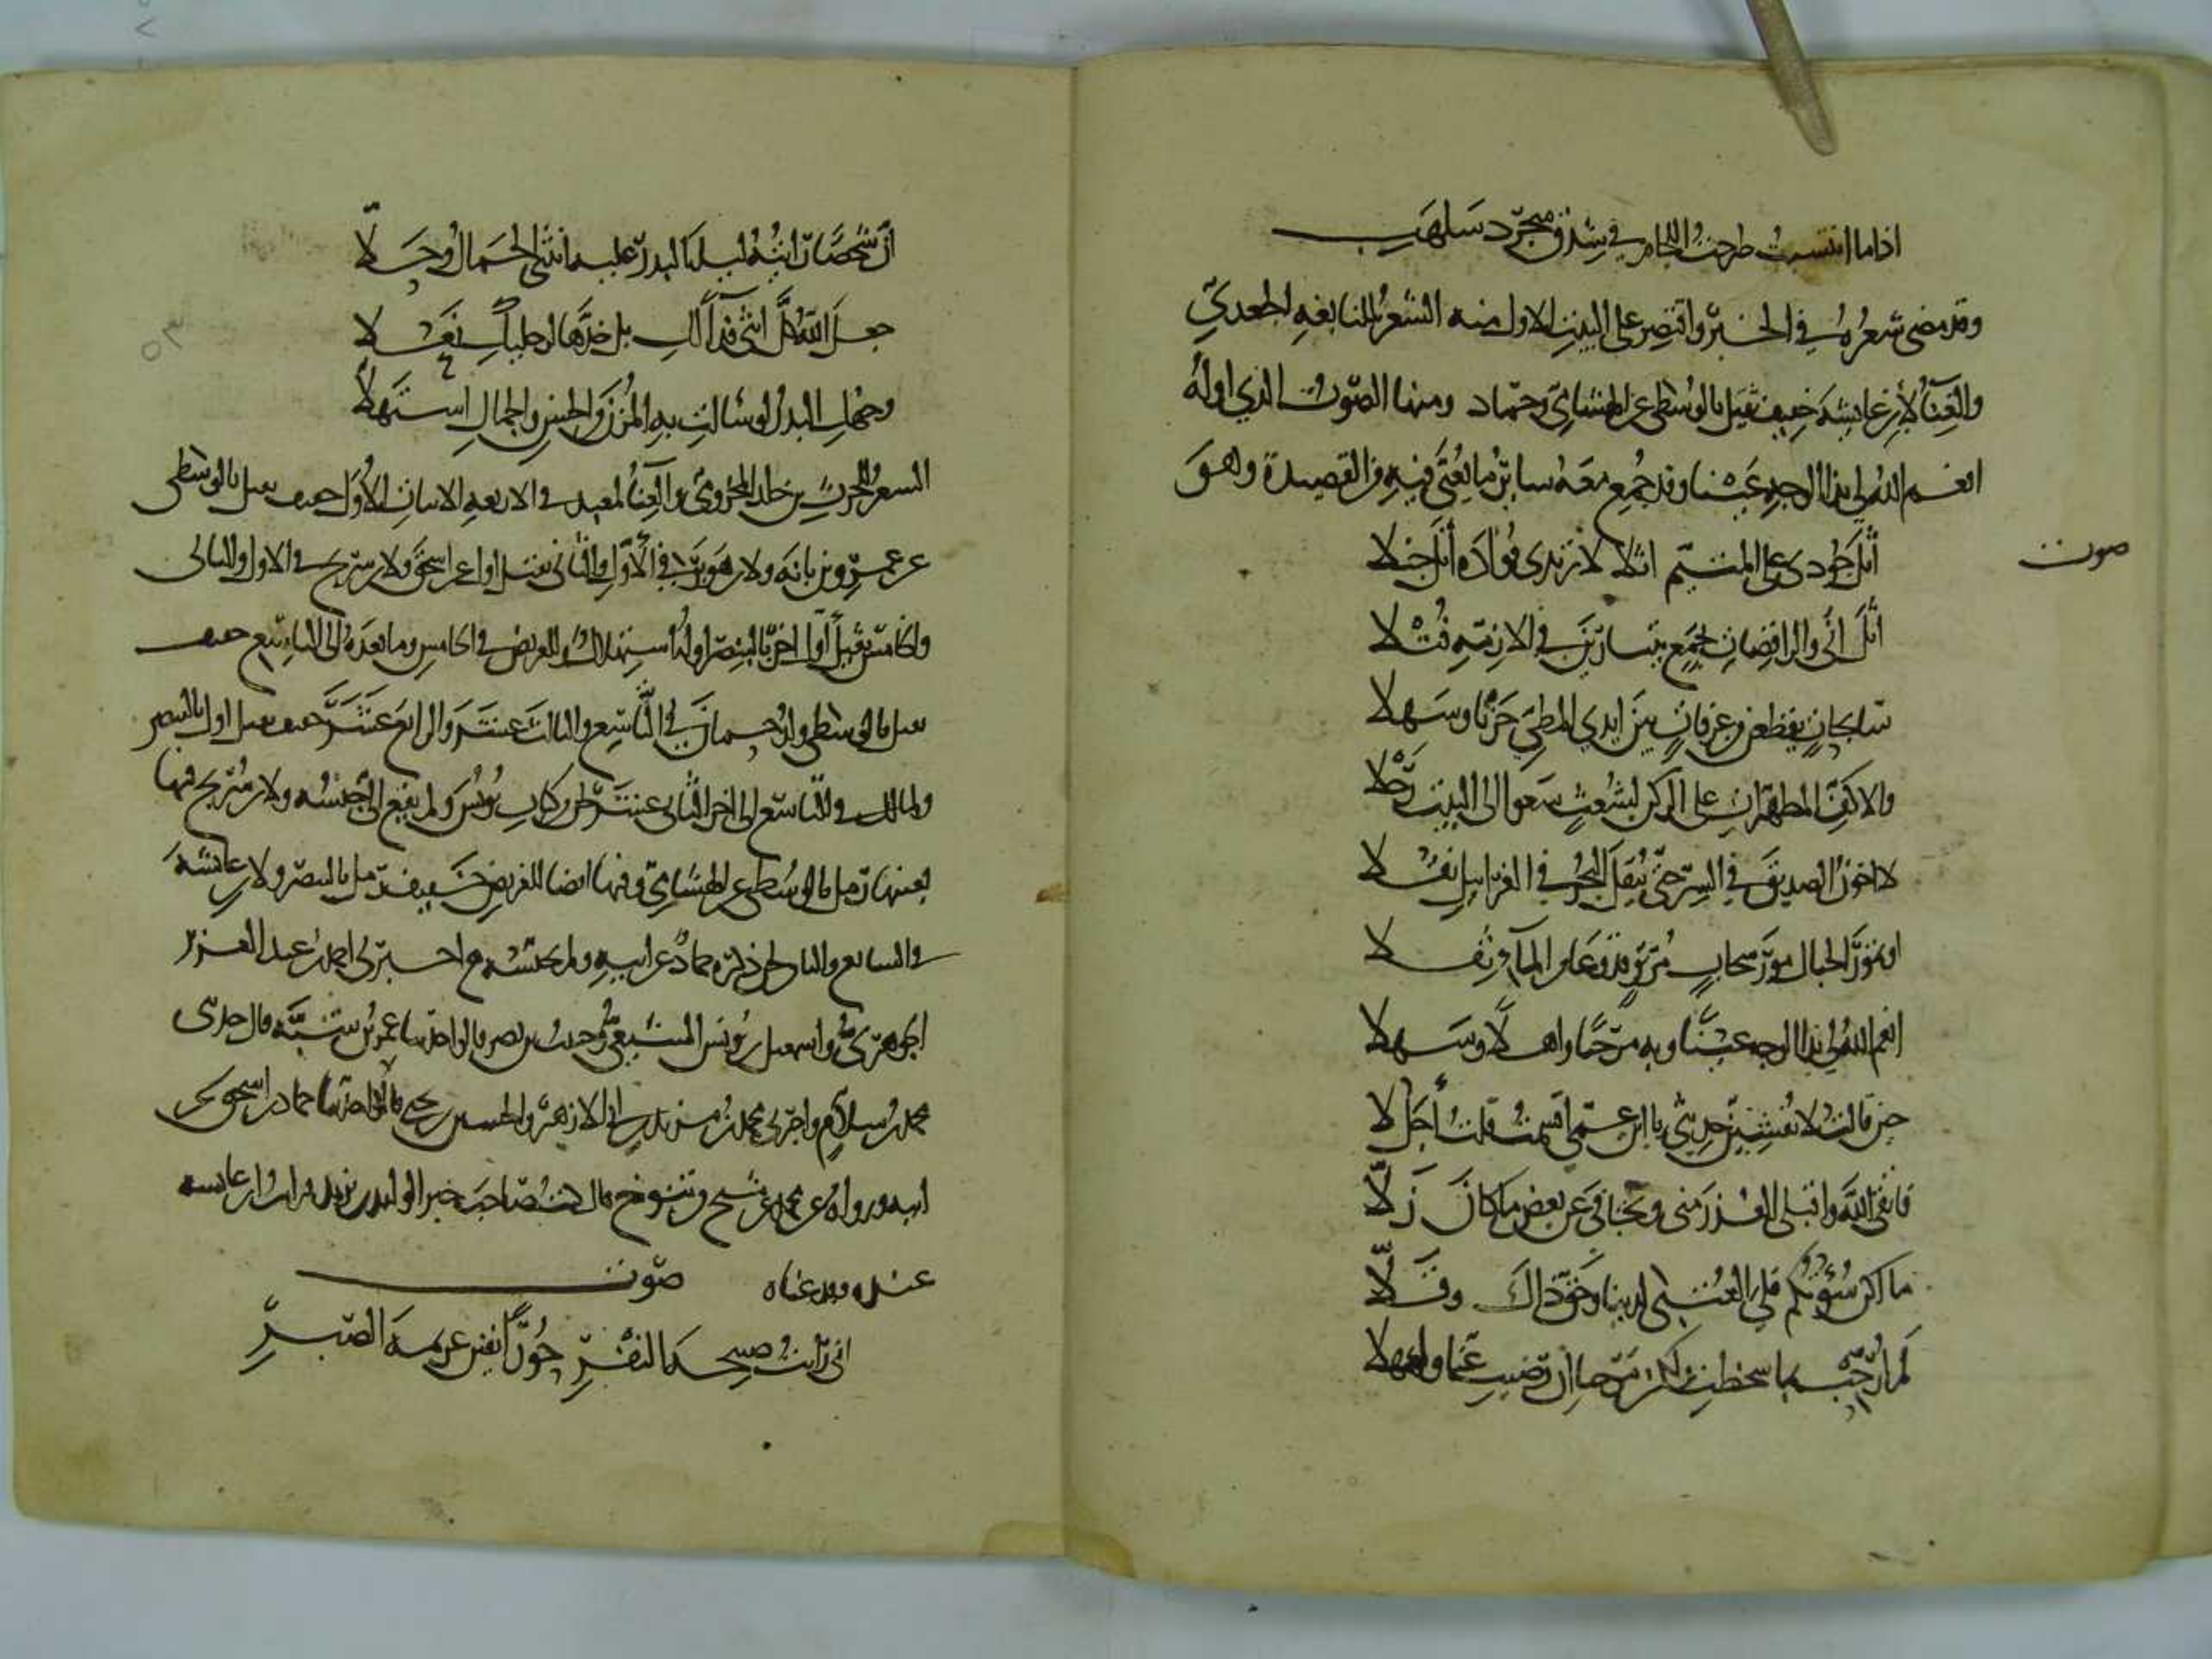 اذاما انتسيت طرحت اللجام في شدق منجرد سلهب
وقد مضى شعره في الخبر واقتصر على البيت الاول منه الشعر للنابغة الجعدي
والغناء لابن عايشة خفيف ثقيل بالوسطى عن الهشامي وحماد ومنها الصوت الذي اوله
انعم الله لي بذا الوجه عينا وقد جمع معه ساير ما يغنى فيه من القصيدة وهو
صوت
أثل جودي على المتيم اثلا لا تزيدي فؤاده أثل خبلا
أثل اني والراقصات بجمع يتبارين في الازمة فتلا
سابحات يقطعن من عرفات بين ايدي المطي حزنا وسهلا
والاكف المطهرات على الركن لشعث سعوا الى البيت رجلا
لا اخون الصديق في السر حتى ينقل البحر في الغرابيل نقلا
او تمور الجبال مور سحاب مرتق قد وعا من الماء ثقلا
انعم الله لي بذا الوجه عينا وبه مرحبا واهلا وسهلا
حين قالت لا تفشين حديثي يا ابن عمي اقسمت قلت أجل لا
فاتقي الله واقبلي العذر مني وتجافي عن بعض ما كان زلا
ما اكن سؤتكم فلك العتبى لدينا وحق ذاك وقلا
لم ارحب بما سخطت ولكن مرحبا ان رضيت عنا واهلا
ان شخصا رايته ليلة البدر عليه انثنى الجمال وحلا
جعل الله كل انثى فداء لك بل خدها لرجليك نعلا
وجهك البدر لو سالت به المزن والحسن والجمال استهلا
الشعر للحرث بن خلد المخزومي والغناء لمعبد في الاربعة الابيات الأول خفيف ثقيل بالوسطى
عن عمرو بن بانة ولابن هوبر في الاول والثاني ثقيل اول عن اسحق ولابن سريج في الاول والثاني
والخامس ثقيل اول اخر بالبنصر اوله استهلال وللغريض في الخامس وما بعده الى التاسع خفيف
ثقيل بالوسطى ولدحمان في التاسع والثالث عشر والرابع عشر خفيف ثقيل اول بالبنصر
ولمالك في التاسع الى اخر الثاني عشر لحن من كتاب يونس ولم يقع الي جنسه ولابن سريج فيها
بعينها رمل بالوسطى عن الهشامي وفيها ايضا للغريض خفيف رمل بالبنصر ولابن عايشة
في السابع والثامن لحن ذكره حماد عن ابيه ولم يجنسه اخبرني احمد بن عبد العزيز
الجوهري واسمعيل بن يونس الشيعي وحبيب بن نصر قالوا حدثنا عمر بن شبة قال حدثني
محمد بن سلام واخبرني محمد بن مزيد بن ابي الازهر والحسين بن يحيى قالا حدثنا حماد بن اسحق عن
ابيه ورواه عن محمد بن سلام كنت صاحب خبر الوليد بن يزيد ابن عايشة
عنده وقد غناه صوت
اني رايت صبيحة النفر حورا نفين عزيمة الصبر